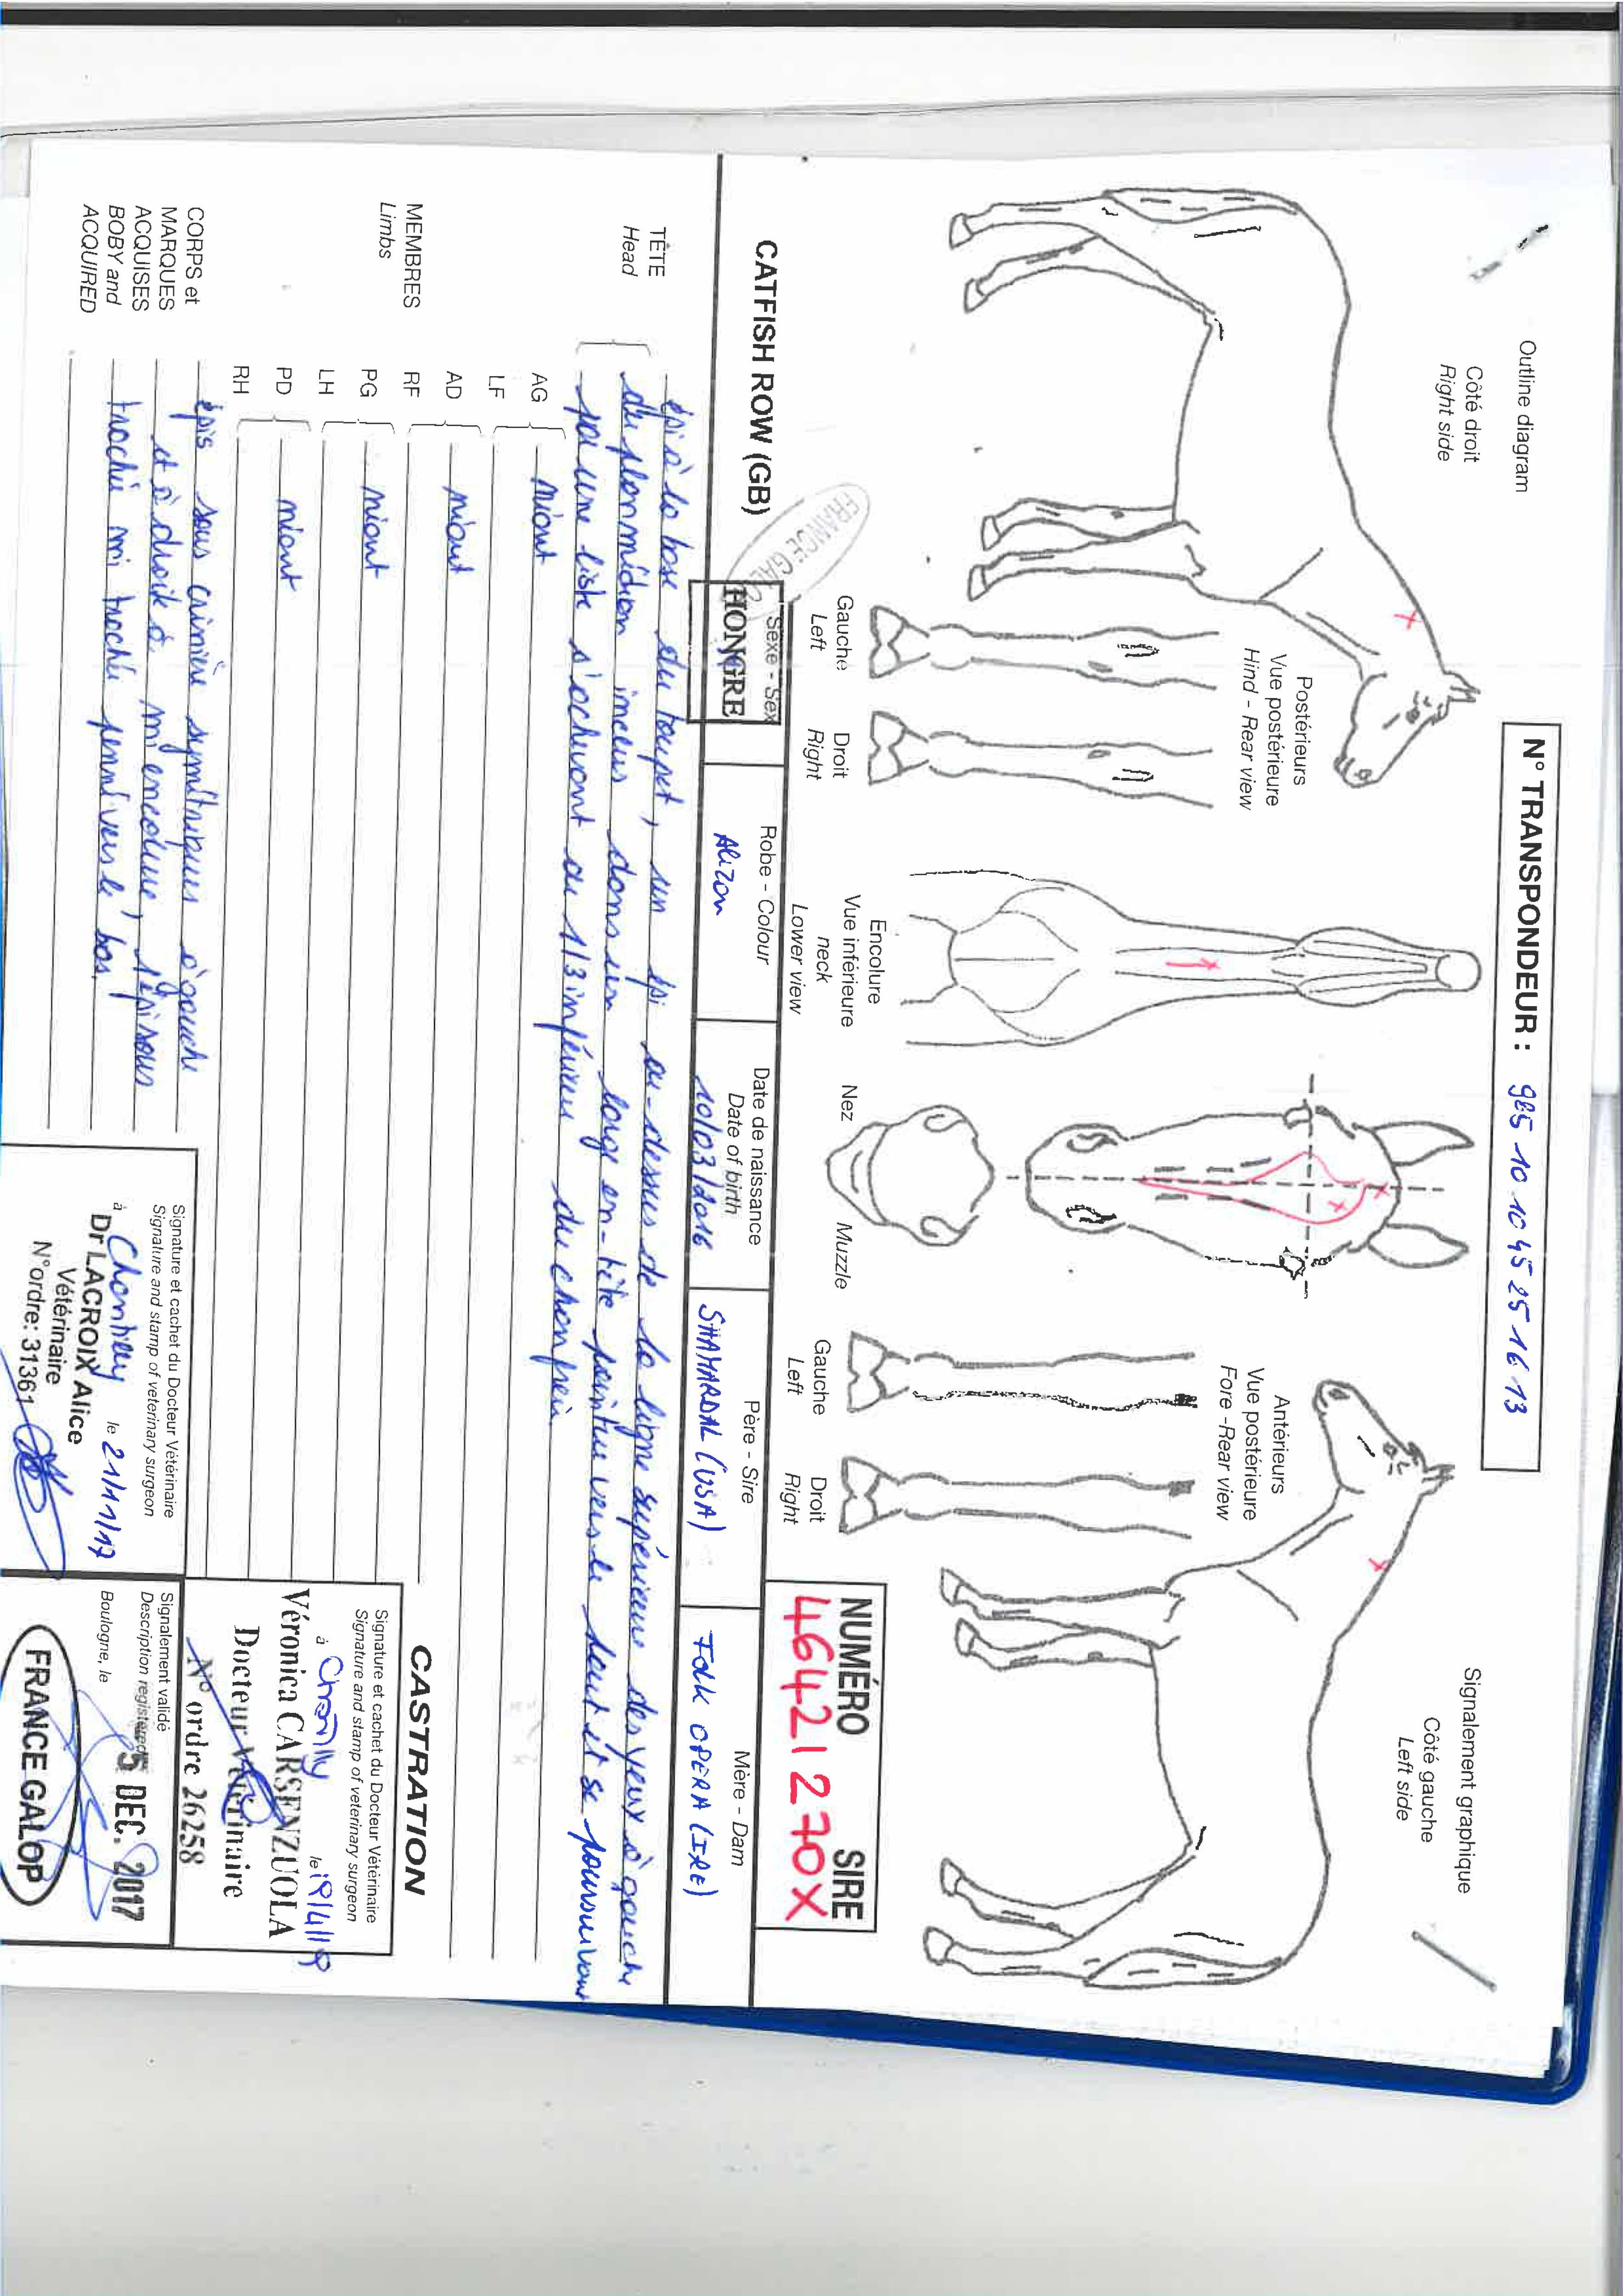 Outline diagram
Côté droit
Right side
N° TRANSPONDEUR : 985 10 10 45 25 16 13
Signalement graphique
Côté gauche
Left side
Postérieurs
Vue postérieure
Hind - Rear view
Gauche
Left
Droit
Right
Encolure
Vue inférieure
neck
Lower view
Nez
Muzzle
Antérieurs
Vue postérieure
Fore - Rear view
Gauche
Left
Droit
Right
NUMÉRO SIRE
46421270X
FRANCE GALOP
CATFISH ROW (GB)
Sexe - Sex
HONGRE
Robe - Colour
Alezan
Date de naissance
Date of birth
10/03/2016
Père - Sire
SHAMARDAL (USA)
Mère - Dam
FOLK OPERA (IRE)
TÊTE
Head
épi à la base du toupet, un épi au-dessus de la ligne supérieure des yeux à gauche
de plan médian inclus dans un large en-tête pointu vers le haut et se poursuivant
par une liste s'achevant au 1/3 inférieur du chanfrein
MEMBRES
Limbs
AG
LF
néant
AD
RF
néant
PG
LH
néant
PD
RH
néant
CORPS et
MARQUES
ACQUISES
BOBY and
ACQUIRED
épis sous crinière symétriques à gauche
et à droite à mi encolure, 1 épi sous
trachée mi trachée penné vers le bas.
Signature et cachet du Docteur Vétérinaire
Signature and stamp of veterinary surgeon
à Chantilly le 21/11/17
Dr LACROIX Alice
Vétérinaire
N°ordre: 31361
CASTRATION
Signature et cachet du Docteur Vétérinaire
Signature and stamp of veterinary surgeon
à Chantilly le 19/4/19
Véronica CARSENZUOLA
Docteur Vétérinaire
N° ordre 26258
Signalement validé
Description registered
Boulogne, le
5 DEC. 2017
FRANCE GALOP